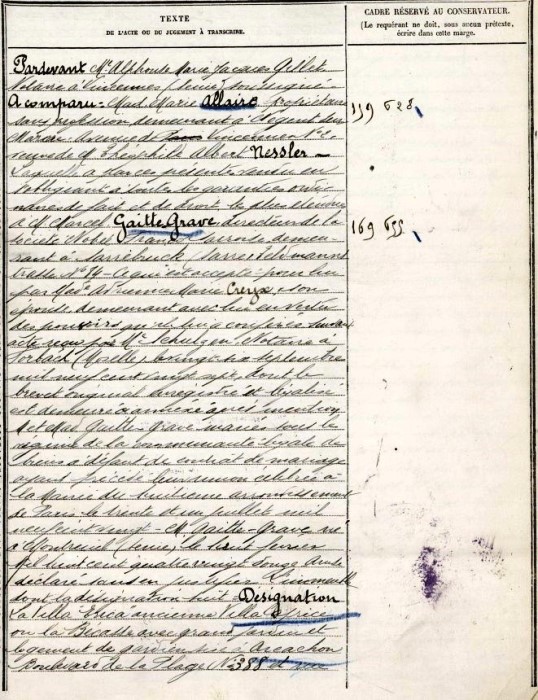 TEXTE
DE L'ACTE OU DU JUGEMENT À TRANSCRIRE.
CADRE RÉSERVÉ AU CONSERVATEUR.
(Le requérant ne doit, sous aucun prétexte,
écrire dans cette marge.
Pardevant Me Alphonse Marie Jacques
Notaire à Vincennes (Seine) soussigné.
A comparu - Mad. Marie Allaire propriétaire
sans profession demeurant à Nogent sur
Marne Avenue de Vincennes No 2.
veuve de M. Théophile Albert Nessler -
Laquelle a par ces présentes vendu en
s'obligeant à toutes les garanties ordi
naires de fait et de droit les plus étendues
à M. Marcel Gaitte Grave directeur de la
société Nobel demeu
rant à Sarrebruck (Sarre)
No 14 - Ce qui est accepté pour lui
par Mad. Marie Creyx, son
épouse, demeurant avec lui en vertu
des pouvoirs qu'il lui a conférés suivant
acte reçu par Me Schulzen Notaire à
Forbach (Moselle) le vingt septembre
mil neuf cent vingt sept, dont le
brevet original enregistré et légalisé
est demeuré annexé après mention
M et Mad Gaitte-Grave mariés sous le
régime de la communauté légale de
biens à défaut de contrat de mariage
ayant précédé leur union célébrée à
la Mairie du huitième arrondissement
de Paris le trente et un juillet mil
neuf cent vingt - M. Gaitte-Grave né
à Montreuil (Seine) le huit février
Mil huit cent quatre vingt douze
déclaré sans en justifier L'immeuble
dont la désignation suit - Designation
La Villa ancienne Villa
ou la Bécasse avec grand jardin et
logement de gardien sise à Arcachon
Boulevard de la Plage (No 388 et
119 628
169 655